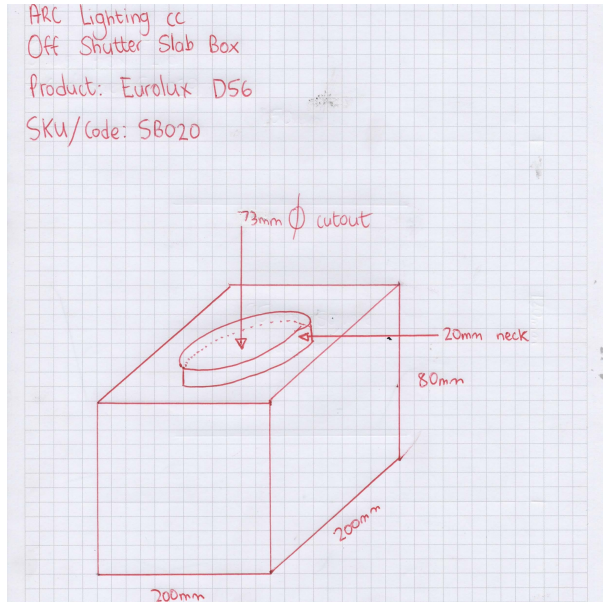 ARC Lighting cc
Off Shutter Slab Box
Product: Eurolux D56
SKU/Code: SB020
73mm ϕ cutout
20mm neck
80mm
200mm
200mm